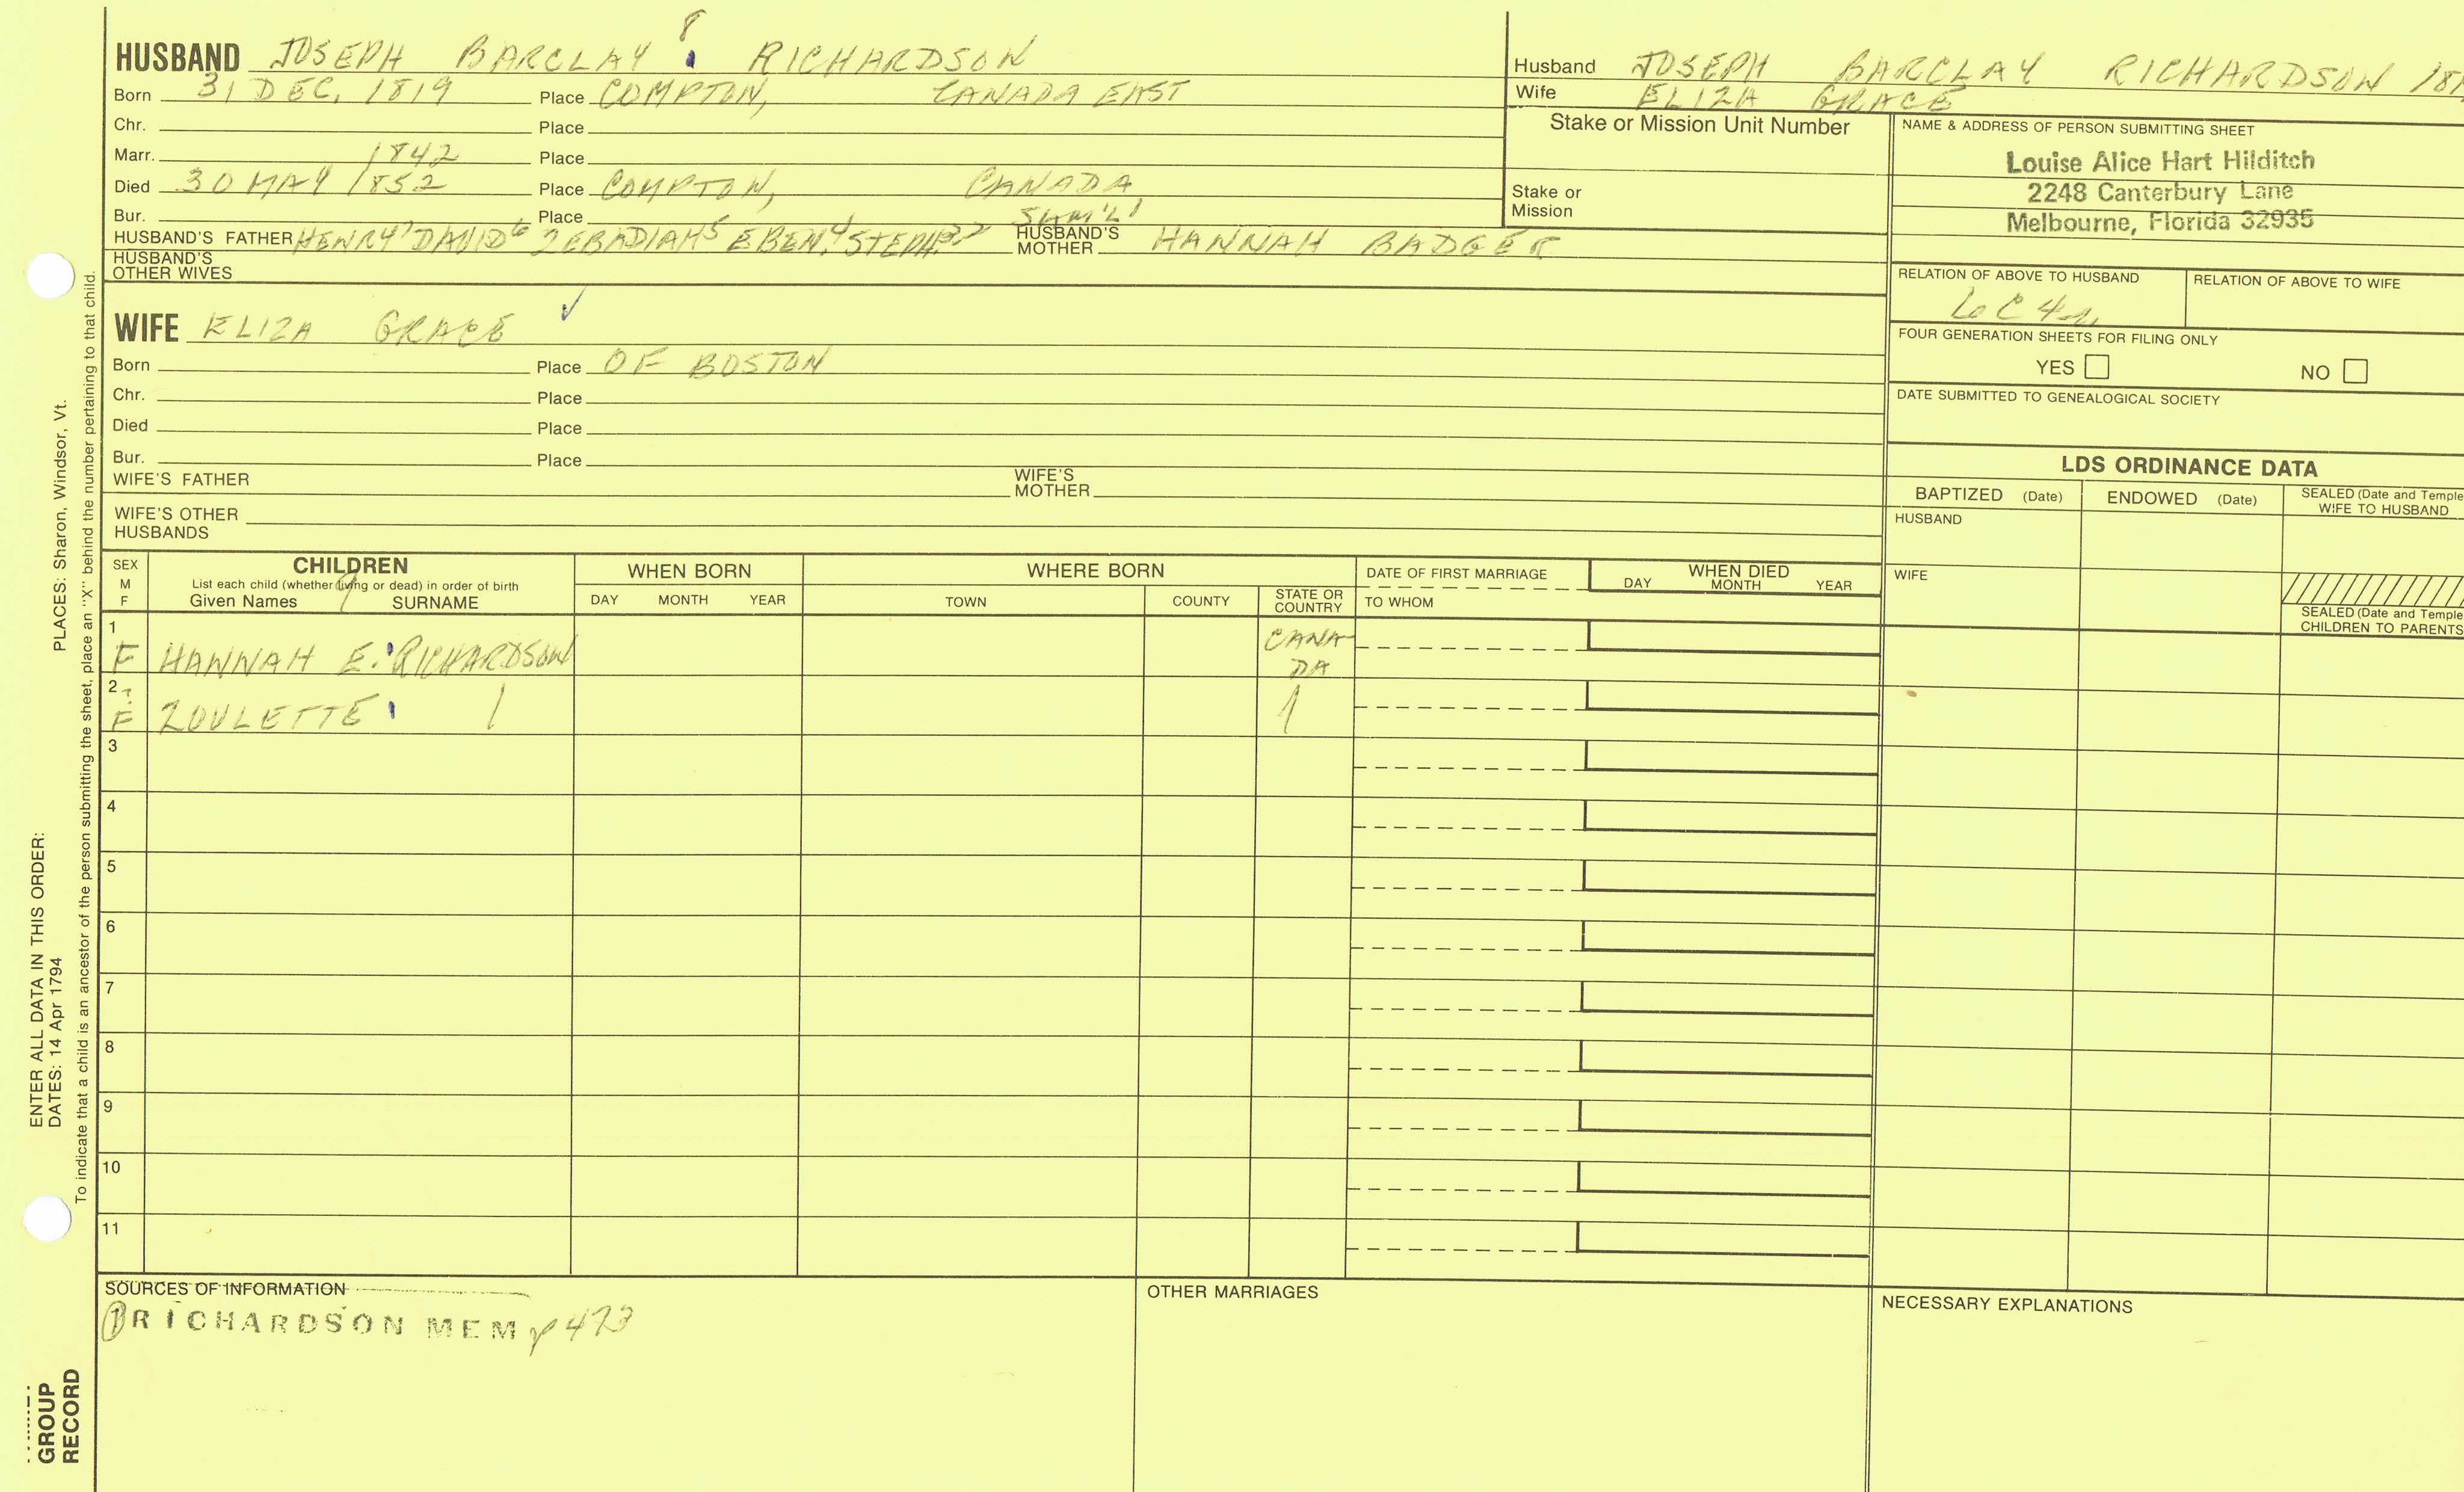 HUSBAND JOSEPH BARCLAY 8 RICHARDSON
Born 31 DEC, 1819 Place COMPTON, CANADA EAST
Chr. Place
Marr. 1842 Place
Died 30 MAY 1852 Place COMPTON, CANADA
Bur. Place
HUSBAND'S FATHER HENRY7 DAVID6 ZEBADIAH5 EBEN.4 STEPH.3,2 SAM'L1 HUSBAND'S MOTHER HANNAH BADGER
HUSBAND'S OTHER WIVES
Husband JOSEPH BARCLAY RICHARDSON
Wife ELIZA GRACE
Stake or Mission Unit Number
Stake or Mission
NAME & ADDRESS OF PERSON SUBMITTING SHEET
Louise Alice Hart Hilditch
2248 Canterbury Lane
Melbourne, Florida 32935
RELATION OF ABOVE TO HUSBAND RELATION OF ABOVE TO WIFE
FOUR GENERATION SHEETS FOR FILING ONLY
YES NO
DATE SUBMITTED TO GENEALOGICAL SOCIETY
WIFE ELIZA GRACE ✓
Born Place OF BOSTON
Chr. Place
Died Place
Bur. Place
WIFE'S FATHER WIFE'S MOTHER
WIFE'S OTHER HUSBANDS
LDS ORDINANCE DATA
BAPTIZED (Date) ENDOWED (Date) SEALED (Date and Temple
WIFE TO HUSBAND
HUSBAND
WIFE
SEALED (Date and Temple
CHILDREN TO PARENTS
SEX M F CHILDREN WHEN BORN WHERE BORN DATE OF FIRST MARRIAGE WHEN DIED
List each child (whether living or dead) in order of birth
Given Names 9 SURNAME DAY MONTH YEAR TOWN COUNTY STATE OR COUNTRY TO WHOM DAY MONTH YEAR
1 F HANNAH E. RICHARDSON CANA-
DA
2 F ZOULETTE
3
4
5
6
7
8
9
10
11
SOURCES OF INFORMATION
① RICHARDSON MEM p 473
OTHER MARRIAGES
NECESSARY EXPLANATIONS
ENTER ALL DATA IN THIS ORDER:
DATES: 14 Apr 1794 PLACES: Sharon, Windsor, Vt.
To indicate that a child is an ancestor of the person submitting the sheet, place an "X" behind the number pertaining to that child.
GROUP
RECORD